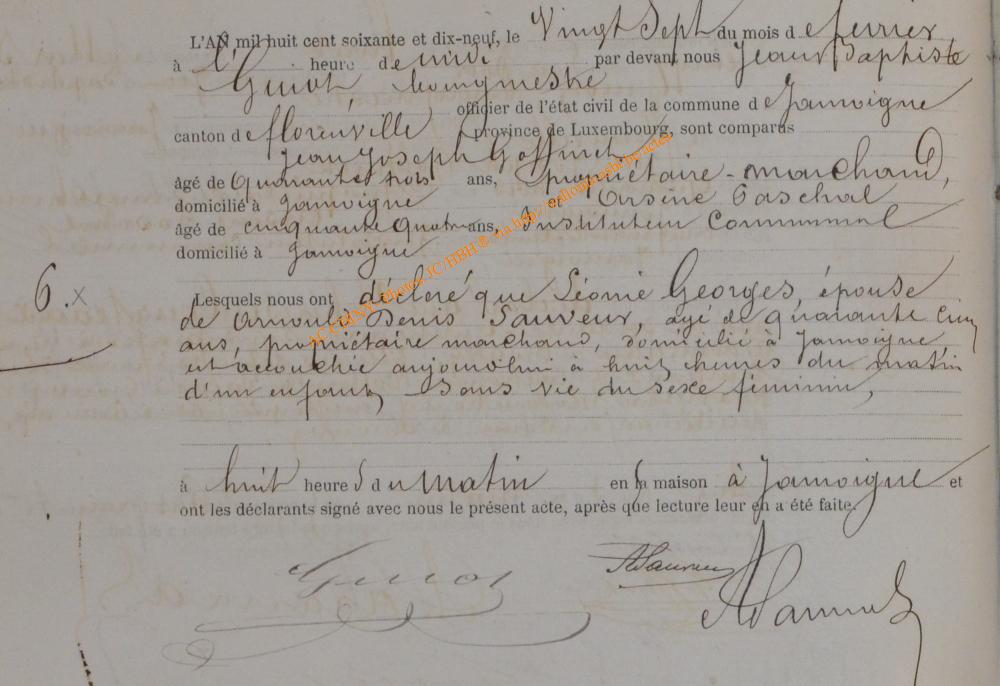 L'AN mil huit cent soixante et dix-neuf, le Vingt Sept du mois de fevrier
à l' heure de midi par devant nous Jean Baptiste
officier de l'état civil de la commune de Jamoigne
canton de florenville province de Luxembourg, sont comparus
Jean Joseph Goffinet
âgé de Quarante trois ans, propriétaire - marchand,
domicilié à Jamoigne et Arsène Paschal
âgé de cinquante quatre ans, Instituteur Communal
domicilié à Jamoigne
6. x
Lesquels nous ont déclaré que Léonie Georges, épouse
de Arnould Denis Sauveur, agé de quarante cinq
ans, propriétaire marchand, domicilié à Jamoigne
est accouchée aujourd'hui à huit heures du matin
d'un enfant Sans vie du sexe féminin,
à huit heures du matin en sa maison à Jamoigne et
ont les déclarants signé avec nous le présent acte, après que lecture leur en a été faite.